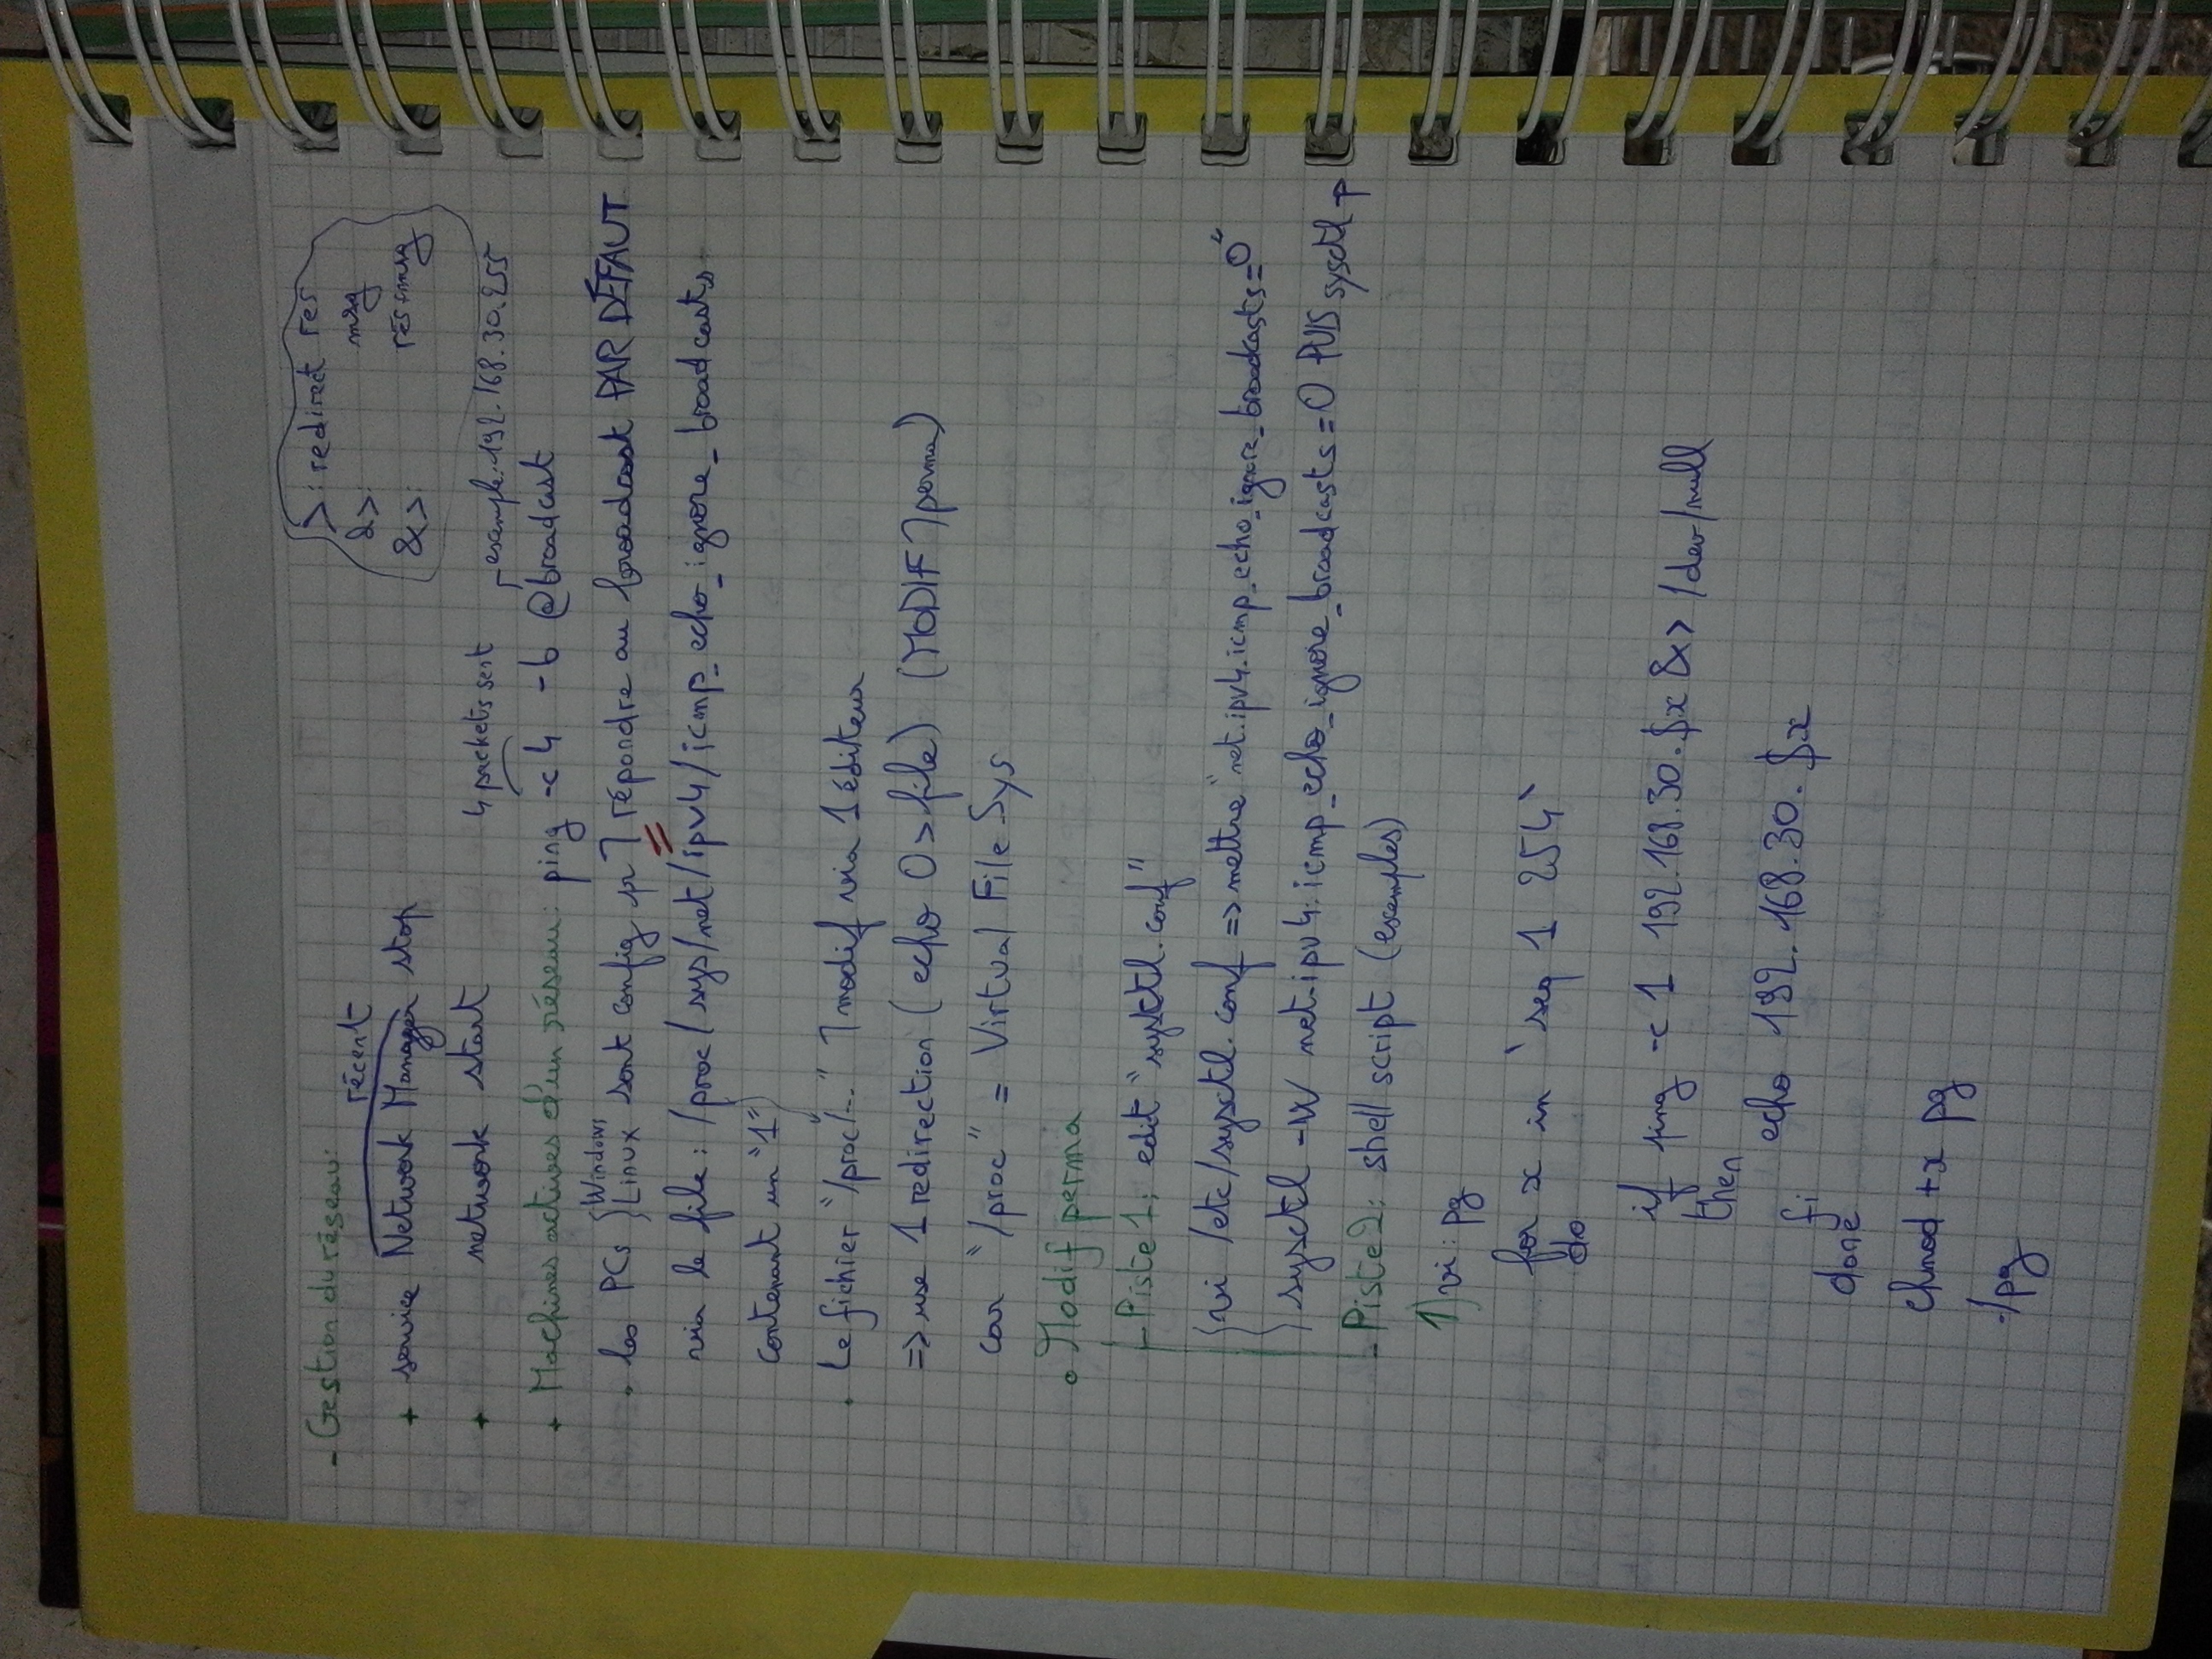 - Gestion du réseau:
>: redirect res
2>: msg
&>: res+msg
récent
+ service Network Manager stop
+ network start
4 packets sent
example: 192.168.30.255
+ Machines actives d'un réseau: ping -c 4 -b @broadcast
. les PCs { Windows
Linux sont config pr ⌉ répondre au broadcast PAR DÉFAUT
via le file: /proc/sys/net/ipv4/icmp_echo_ignore_broadcasts
contenant un "1"
. Le fichier "/proc/..." ⌉ modif via 1 éditeur
=> use 1 redirection (echo 0 > file) (MODIF ⌉ perma)
car "/proc" = Virtual File Sys
o Modif perma
- Piste 1: edit "sysctl.conf"
{ vi /etc/sysctl.conf => mettre "net.ipv4.icmp_echo_ignore_broadcasts=0"
sysctl -w net.ipv4.icmp_echo_ignore_broadcasts=0 PUIS sysctl -p
- Piste 2: shell script (examples)
1) vi: pg
for x in `seq 1 254`
do
if ping -c 1 192.168.30.$x &> /dev/null
then
echo 192.168.30.$x
fi
done
chmod +x pg
./pg